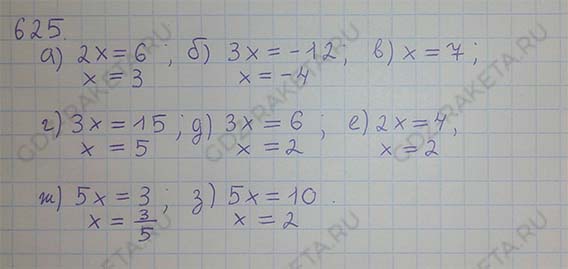 625.
а) 2x = 6 ; б) 3x = -12, в) x = 7 ;
x = 3 x = -4
г) 3x = 15 ; д) 3x = 6 ; е) 2x = 4,
x = 5 x = 2 x = 2
ж) 5x = 3 ; з) 5x = 10 .
x = 3/5 x = 2
GDZRAKETA.RU